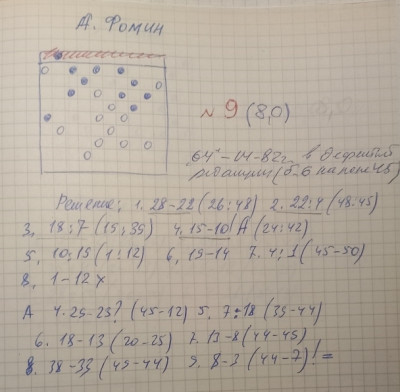 А. Фомин
№ 9 (8,0)
в дефектной
Решение: 1. 28-22 (26:48) 2. 22:4 (48:45)
3. 18:7 (15:35) 4. 15-10! А (24:42)
5. 10:15 (1:12) 6. 19-14 7. 4:1 (45-50)
8. 1-12 x
А 4. 25-25? (45-12) 5. 7:18 (35-44)
6. 18-13 (20-25) 7. 13-8 (44-45)
8. 38-33 (45-44) 9. 8-3 (44-7)! =